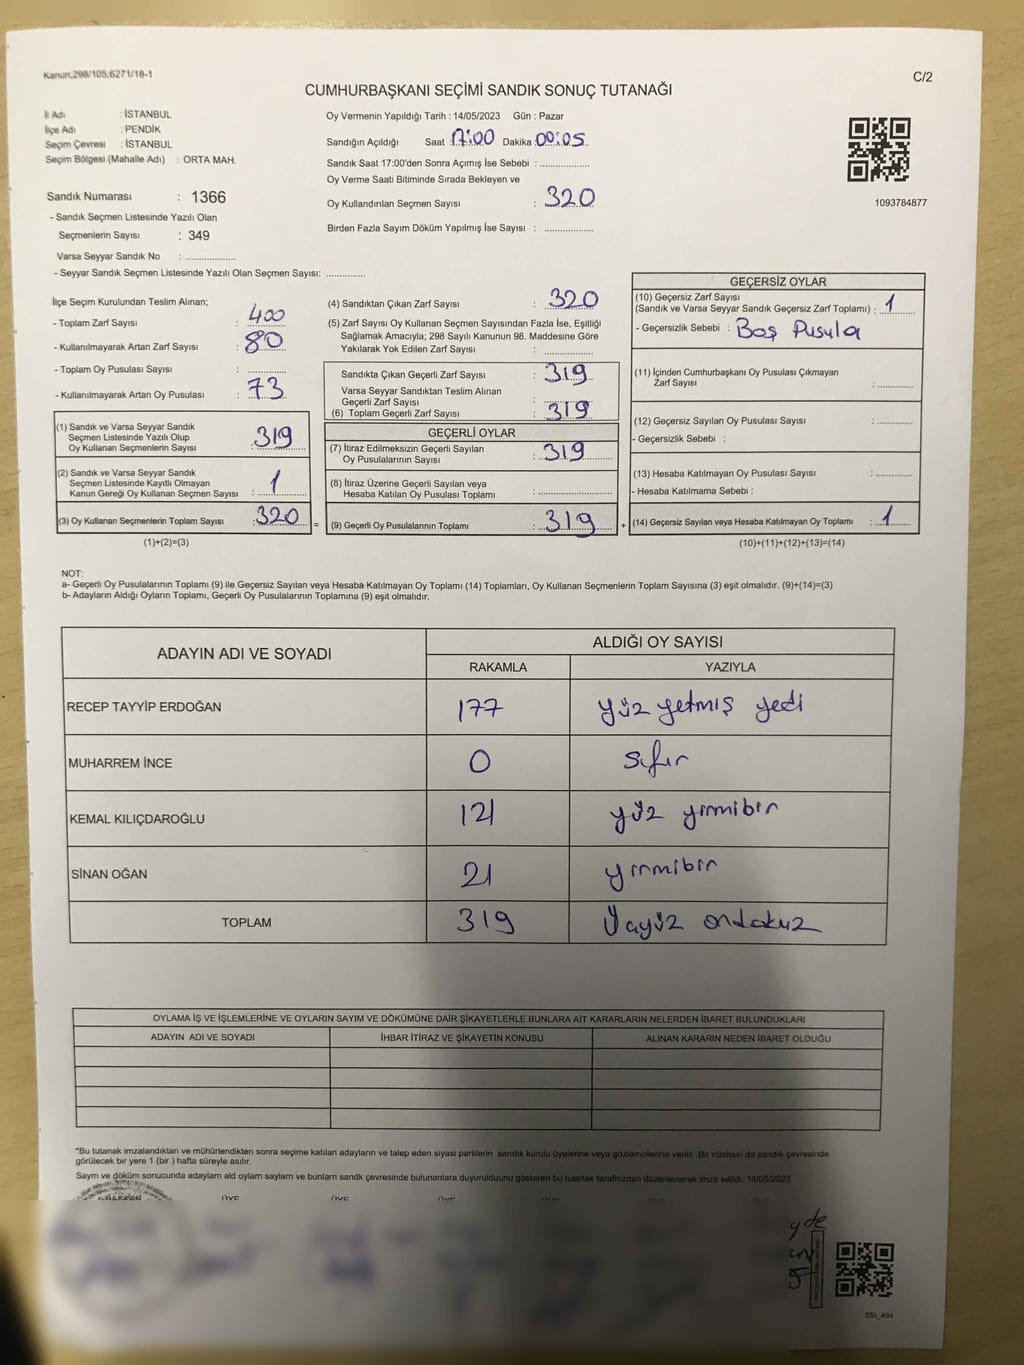 Kanun;298/105;6271/18-1
C/2
CUMHURBAŞKANI SEÇİMİ SANDIK SONUÇ TUTANAĞI
İl Adı : İSTANBUL
İlçe Adı : PENDİK
Seçim Çevresi : İSTANBUL
Seçim Bölgesi (Mahalle Adı) : ORTA MAH.
Sandık Numarası : 1366
- Sandık Seçmen Listesinde Yazılı Olan
Seçmenlerin Sayısı : 349
Varsa Seyyar Sandık No : ..................
- Seyyar Sandık Seçmen Listesinde Yazılı Olan Seçmen Sayısı: ..............
Oy Vermenin Yapıldığı Tarih : 14/05/2023 Gün : Pazar
Sandığın Açıldığı Saat 17:00 Dakika : 00:05
Sandık Saat 17:00'den Sonra Açımış İse Sebebi : ..................
Oy Verme Saati Bitiminde Sırada Bekleyen ve
Oy Kullandırılan Seçmen Sayısı : 320
Birden Fazla Sayım Döküm Yapılmış İse Sayısı : ..................
1093784877
İlçe Seçim Kurulundan Teslim Alınan;
- Toplam Zarf Sayısı : 400
- Kullanılmayarak Artan Zarf Sayısı : 80
- Toplam Oy Pusulası Sayısı : ..............
- Kullanılmayarak Artan Oy Pusulası : 73
(1) Sandık ve Varsa Seyyar Sandık
Seçmen Listesinde Yazılı Olup
Oy Kullanan Seçmenlerin Sayısı : 319
(2) Sandık ve Varsa Seyyar Sandık
Seçmen Listesinde Kayıtlı Olmayan
Kanun Gereği Oy Kullanan Seçmen Sayısı : 1
(3) Oy Kullanan Seçmenlerin Toplam Sayısı : 320
(1)+(2)=(3)
(4) Sandıktan Çıkan Zarf Sayısı : 320
(5) Zarf Sayısı Oy Kullanan Seçmen Sayısından Fazla İse, Eşitliği
Sağlamak Amacıyla; 298 Sayılı Kanunun 98. Maddesine Göre
Yakılarak Yok Edilen Zarf Sayısı : ..................
Sandıkta Çıkan Geçerli Zarf Sayısı : 319
Varsa Seyyar Sandıktan Teslim Alınan
Geçerli Zarf Sayısı : ..................
(6) Toplam Geçerli Zarf Sayısı : 319
GEÇERLİ OYLAR
(7) İtiraz Edilmeksizin Geçerli Sayılan
Oy Pusulalarının Sayısı : 319
(8) İtiraz Üzerine Geçerli Sayılan veya
Hesaba Katılan Oy Pusulası Toplamı : ..................
= (9) Geçerli Oy Pusulalarının Toplamı : 319 +
GEÇERSİZ OYLAR
(10) Geçersiz Zarf Sayısı
(Sandık ve Varsa Seyyar Sandık Geçersiz Zarf Toplamı) : 1
- Geçersizlik Sebebi : Boş Pusula
(11) İçinden Cumhurbaşkanı Oy Pusulası Çıkmayan
Zarf Sayısı : ..............
(12) Geçersiz Sayılan Oy Pusulası Sayısı : ..............
- Geçersizlik Sebebi :
(13) Hesaba Katılmayan Oy Pusulası Sayısı : ..............
- Hesaba Katılmama Sebebi :
(14) Geçersiz Sayılan veya Hesaba Katılmayan Oy Toplamı : 1
(10)+(11)+(12)+(13)=(14)
NOT:
a- Geçerli Oy Pusulalarının Toplamı (9) ile Geçersiz Sayılan veya Hesaba Katılmayan Oy Toplamı (14) Toplamları, Oy Kullanan Seçmenlerin Toplam Sayısına (3) eşit olmalıdır. (9)+(14)=(3)
b- Adayların Aldığı Oyların Toplamı, Geçerli Oy Pusulalarının Toplamına (9) eşit olmalıdır.
ADAYIN ADI VE SOYADI
ALDIĞI OY SAYISI
RAKAMLA YAZIYLA
RECEP TAYYİP ERDOĞAN 177 yüz yetmiş yedi
MUHARREM İNCE 0 sıfır
KEMAL KILIÇDAROĞLU 121 yüz yirmibir
SİNAN OĞAN 21 yirmibir
TOPLAM 319 Üçyüz ondokuz
OYLAMA İŞ VE İŞLEMLERİNE VE OYLARIN SAYIM VE DÖKÜMÜNE DAİR ŞİKAYETLERLE BUNLARA AİT KARARLARIN NELERDEN İBARET BULUNDUKLARI
ADAYIN ADI VE SOYADI İHBAR İTİRAZ VE ŞİKAYETİN KONUSU ALINAN KARARIN NEDEN İBARET OLDUĞU
*Bu tutanak imzalandıktan ve mühürlendikten sonra seçime katılan adayların ve talep eden siyasi partilerin sandık kurulu üyelerine veya gözlemcilerine verilir. Bir nüshası da sandık çevresinde
görülecek bir yere 1 (bir ) hafta süreyle asılır.
Sayım ve döküm sonucunda adayların aldığı oyların sayıları ve bunların sandık çevresinde bulunanlara duyurulduğunu gösteren bu tutanak tarafımızdan düzenlenerek imza edildi. 14/05/2023
BAŞKAN ÜYE ÜYE ÜYE
SSİ_404